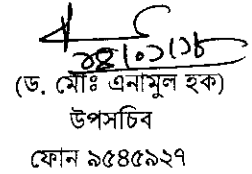 (ড. মোঃ এনামুল হক)
উপসচিব
ফোন ৯৫৪৫৯২৭